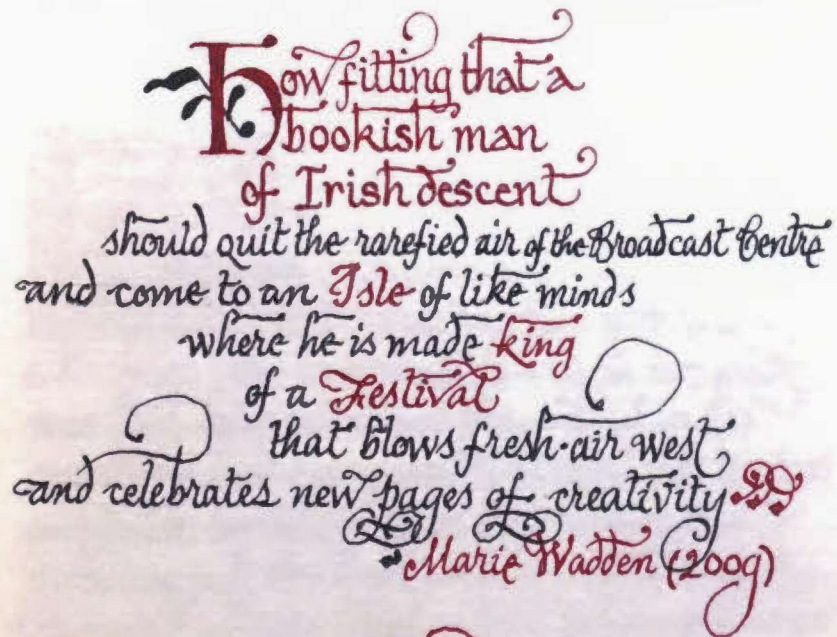 How fitting that a
bookish man
of Irish descent
should quit the rarefied air of the Broadcast Centre
and come to an Isle of like minds
where he is made king
of a Festival
that blows fresh-air west
and celebrates new pages of creativity
Marie Wadden (2009)